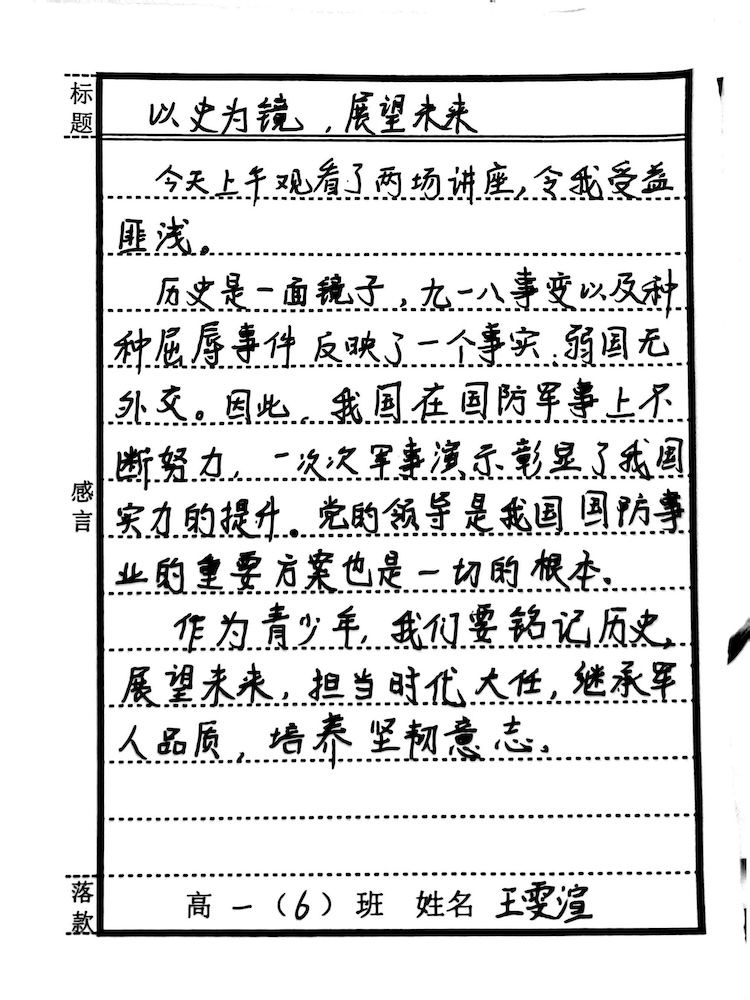 标题
以史为镜，展望未来
今天上午观看了两场讲座，令我受益
匪浅。
历史是一面镜子，九一八事变以及种
种屈辱事件反映了一个事实、弱国无
外交。因此、我国在国防军事上不
断努力，一次次军事演示彰显了我国
感言
实力的提升。党的领导是我国国防事
业的重要方案也是一切的根本。
作为青少年，我们要铭记历史，
展望未来，担当时代大任，继承军
人品质，培养坚韧意志。
落款
高一（6）班 姓名 王雯渲